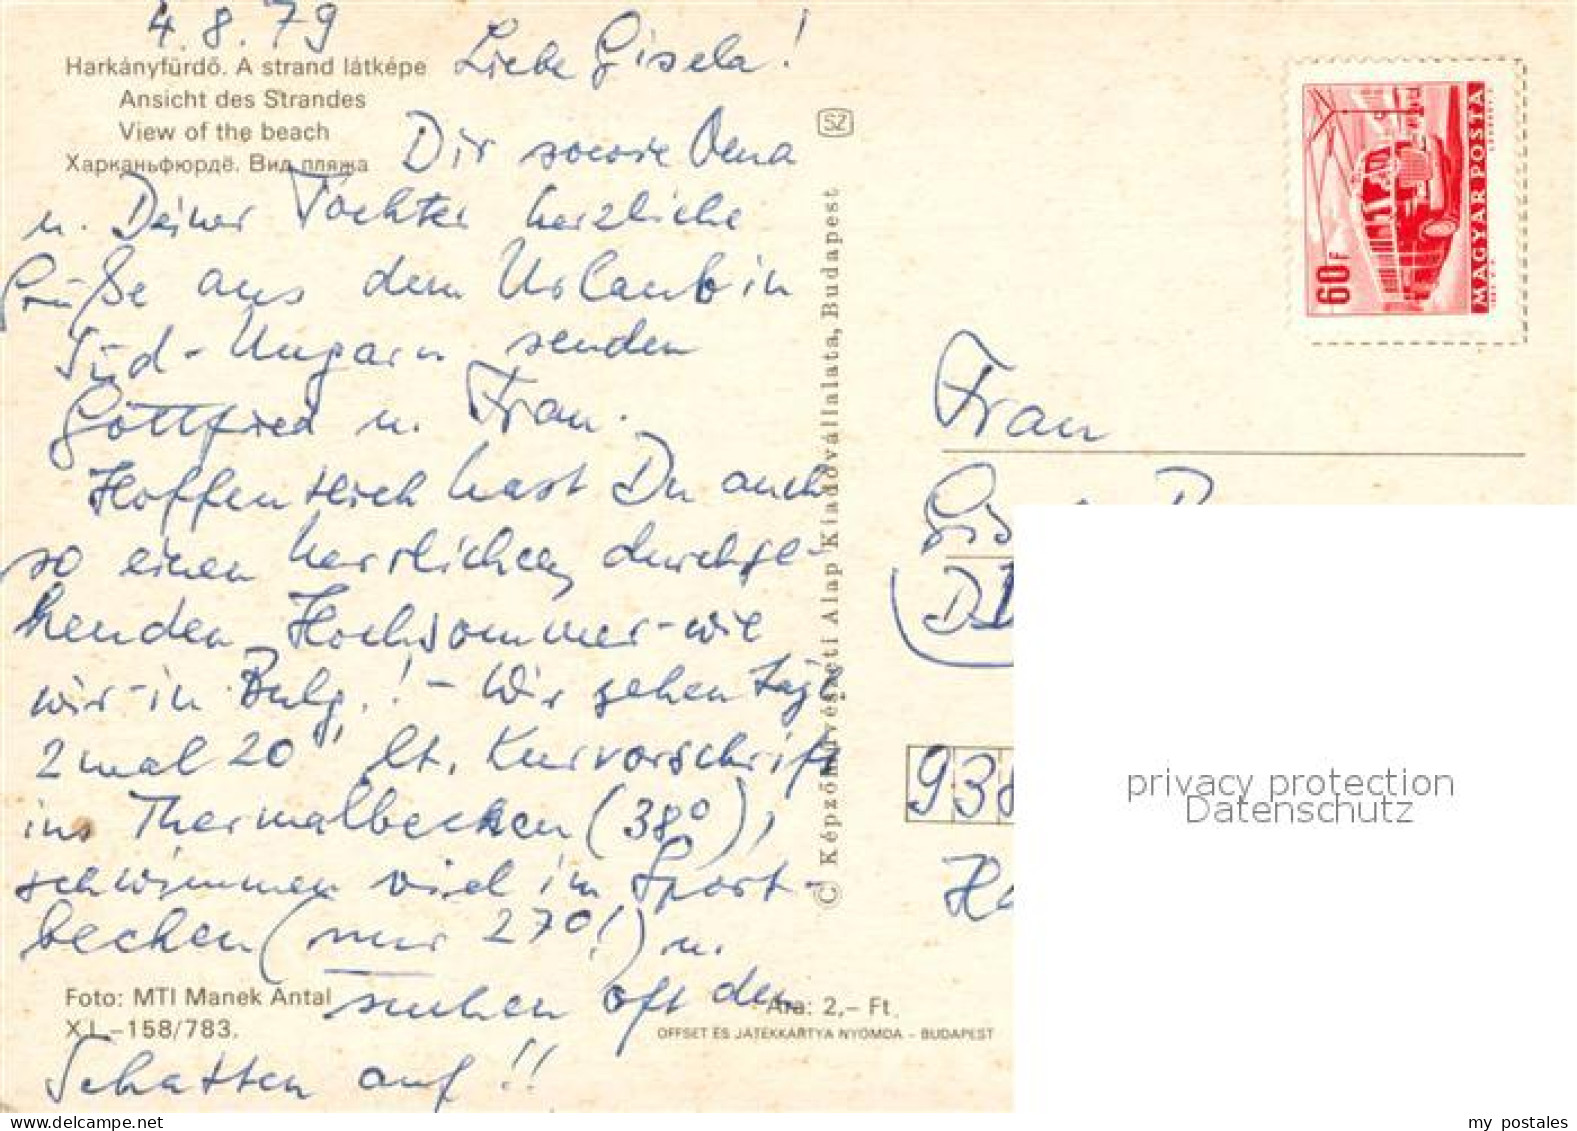 4.8.79
Harkányfürdő. A strand látképe
Ansicht des Strandes
View of the beach
Харканьфюрдё. Вид пляжа
Liebe Gisela!
Dir sowie Oma
u. Deiner Töchter herzliche
Grüße aus dem Urlaub in
Süd-Ungarn senden
Gottfried u. Frau.
Hoffentlich hast Du auch
so einen herrlichen durchge-
henden Hochsommer - wie
wir in Bulg.! - Wir gehen tägl.
2 mal 20" lt. Kurvorschrift
ins Thermalbecken (38°),
schwimmen viel im Sport-
becken (nur 27°!) u.
suchen oft den
Schatten auf!!
Foto: MTI Manek Antal
XL-158/783.
Ára: 2,- Ft
OFFSET ÉS JÁTÉKKÁRTYA NYOMDA - BUDAPEST
© Képzőművészeti Alap Kiadóvállalata, Budapest
SZ
60F
MAGYAR POSTA
Frau
938
privacy protection
Datenschutz
my postales